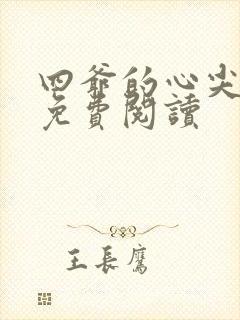 四爺的心尖
免費閱讀
王長鷹